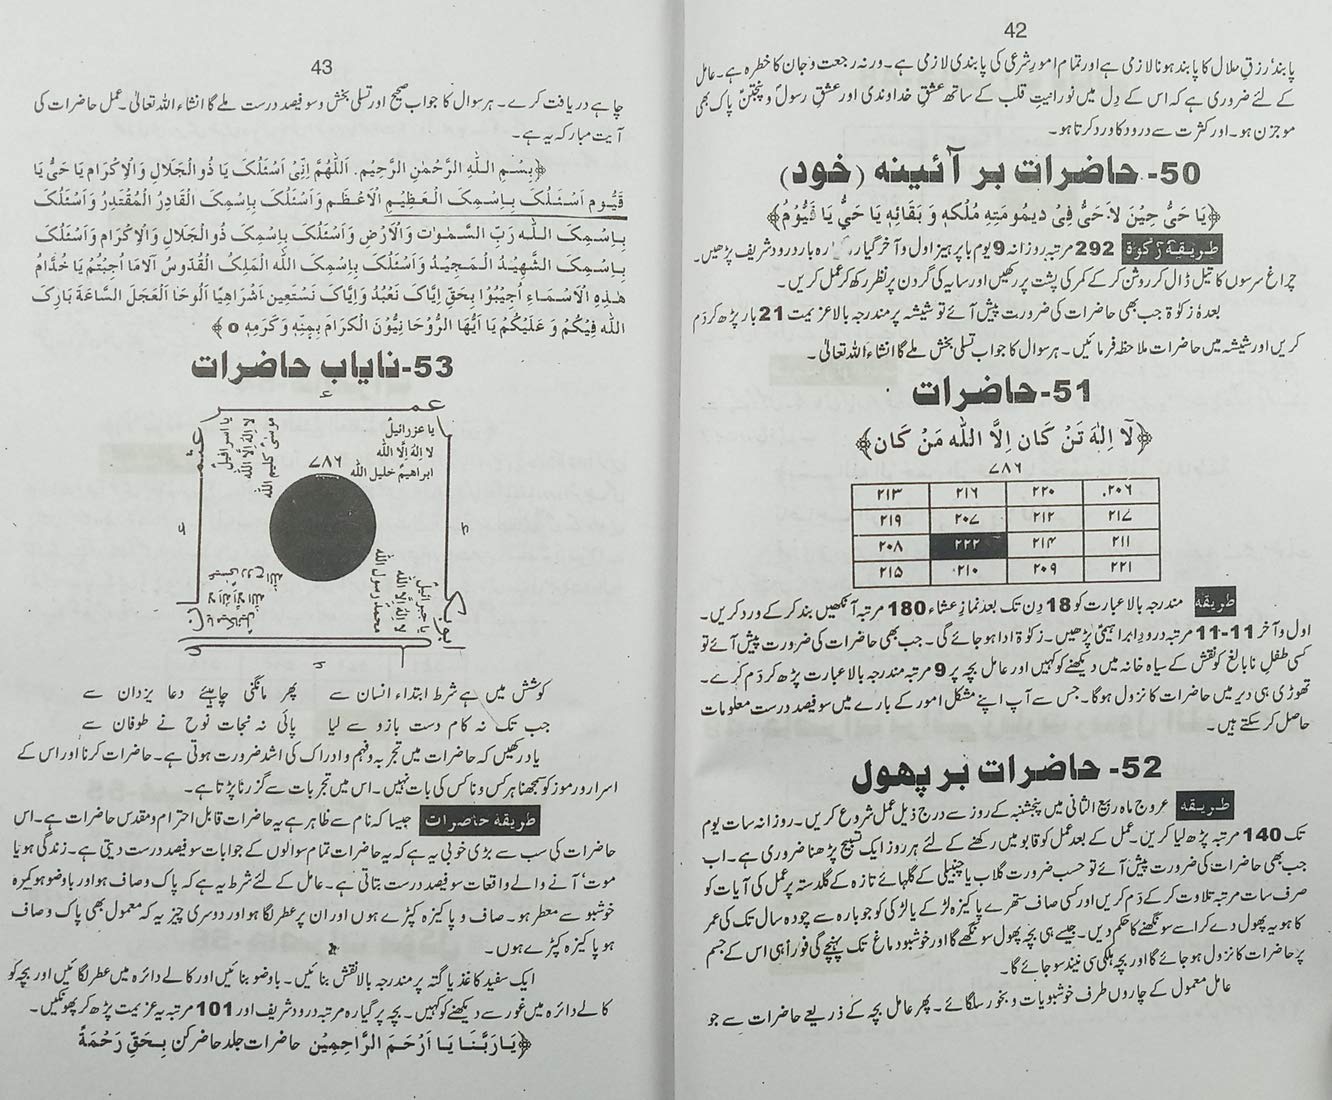 42
پابند' رزقِ حلال کا پابند ہونا لازمی ہے اور تمام امورِ شرعی کی پابندی لازمی ہے۔ ورنہ رجعت و جان کا خطرہ ہے۔ عامل
کے لئے ضروری ہے کہ اس کے دِل میں نورانیتِ قلب کے ساتھ عشقِ خداوندی اور عشقِ رسولؐ و پنجتنؑ پاک بھی
موجزن ہو۔ اور کثرت سے درود کا ورد کرتا ہو۔
50- حاضرات بر آئینہ (خود)
﴿یَا حَیُّ حِیْنَ لَا حَیُّ فِیْ دیمومَتِهٖ مُلْکِهٖ وَ بَقَائِهٖ یَا حَیُّ یَا قَیُّوْمُ﴾
طریقہ زکوۃ 292 مرتبہ روزانہ 9 یوم با پرہیز اول و آخر گیارہ بار درود شریف پڑھیں۔
چراغ سرسوں کا تیل ڈال کر روشن کر کے کمر کی پشت پر رکھیں اور سایہ کی گردن پر نظر رکھ کر عمل کریں۔
بعدہٗ زکوٰۃ جب بھی حاضرات کی ضرورت پیش آئے تو شیشہ پر مندرجہ بالا عزیمت 21 بار پڑھ کر دَم
کریں اور شیشہ میں حاضرات ملاحظہ فرمائیں۔ ہر سوال کا جواب تسلی بخش ملے گا انشاءَ اللہ تعالیٰ۔
51- حاضرات
﴿لَا اِلٰهَ تَنْ کَان اِلَّا اللّٰه مَنْ کَان﴾
۷۸۶
۲۱۳ ۲۱۶ ۲۲۰ ۲۰۶
۲۱۹ ۲۰۷ ۲۱۲ ۲۱۷
۲۰۸ ۲۲۲ ۲۱۴ ۲۱۱
۲۱۵ ۲۱۰ ۲۰۹ ۲۲۱
طریقہ مندرجہ بالا عبارت کو 18 دِن تک بعد نمازِ عشاء 180 مرتبہ آنکھیں بند کر کے ورد کریں۔
اول و آخر 11-11 مرتبہ درودِ ابراہیمیؑ پڑھیں۔ زکوٰۃ ادا ہو جائے گی۔ جب بھی حاضرات کی ضرورت پیش آئے تو
کسی طفلِ نابالغ کو نقش کے سیاہ خانہ میں دیکھنے کو کہیں اور عامل بچہ پر 9 مرتبہ مندرجہ بالا عبارت پڑھ کر دَم کرے۔
تھوڑی ہی دیر میں حاضرات کا نزول ہوگا۔ جس سے آپ اپنے مشکل امور کے بارے میں سو فیصد درست معلومات
حاصل کر سکتے ہیں۔
52- حاضرات بر پھول
طریقہ عروج ماہ ربیع الثانی میں پنجشنبہ کے روز سے درج ذیل عمل شروع کریں۔ روزانہ سات یوم
تک 140 مرتبہ پڑھ لیا کریں۔ عمل کے بعد عمل کو قابو میں رکھنے کے لئے ہر روز ایک تسبیح پڑھنا ضروری ہے۔ اب
جب بھی حاضرات کی ضرورت پیش آئے تو حسب ضرورت گلاب یا چنبیلی کے گلہائے تازہ کے گلدستہ پر عمل کی آیات کو
صرف سات مرتبہ تلاوت کر کے دَم کریں اور کسی صاف ستھرے پاکیزہ لڑکے یا لڑکی کو جو بارہ سے چودہ سال تک کی عمر
کا ہو یہ پھول دے کر اسے سونگھنے کا حکم دیں۔ جیسے ہی بچہ پھول سونگھے گا اور خوشبو دماغ تک پہنچے گی فوراً ہی اس کے جسم
پر حاضرات کا نزول ہو جائے گا اور بچہ ہلکی سی نیند سو جائے گا۔
عامل معمول کے چاروں طرف خوشبویات و بخور سلگائے۔ پھر عامل بچہ کے ذریعے حاضرات سے جو
43
چاہے دریافت کرے۔ ہر سوال کا جواب صحیح اور تسلی بخش و سو فیصد درست ملے گا انشاء اللہ تعالیٰ۔ عمل حاضرات کی
آیت مبارکہ یہ ہے۔
﴿بِسْمِ اللّٰهِ الرَّحْمٰنِ الرَّحِیْمِ. اَللّٰهُمَّ اِنِّیْ اَسْئَلُکَ یَا ذُو الْجَلَالِ وَالْاِکْرَام یَا حَیُّ یَا
قَیُّوم اَسْئَلُکَ بِاِسْمِکَ الْعَظِیْمِ الْاَعْظَمِ وَاَسْئَلُکَ بِاِسْمِکَ الْقَادِرُ الْمُقْتَدِرُ وَاَسْئَلُکَ
بِاِسْمِکَ اللّٰه رَبَّ السَّمٰوٰت وَالْاَرْضِ وَاَسْئَلُکَ بِاِسْمِکَ ذُو الْجَلَالِ وَالْاِکْرَام وَاَسْئَلُکَ
بِاِسْمِکَ الشَّهِیْدُ الْمَجِیْدُ وَاَسْئَلُکَ بِاِسْمِکَ اللّٰه الْمَلِکُ الْقُدُّوسُ آلَامَا اُجِبْتُمْ یَا خُدَّامُ
هٰذِهِ الْاَسْمَاءِ اُجِیْبُوْا بِحَقِّ اِیَّاکَ نَعْبُدُ وَاِیَّاکَ نَسْتَعِیْنِ اَشْرَاهِیًا اَلُوحَا اَلْعَجَلَ السَّاعَةَ بَارِکَ
اللّٰه فِیْکُمْ وَ عَلَیْکُمْ یَا اَیُّهَا الرُّوْحَا نِیُّوْنَ الْکَرَامَ بِمِنِّهٖ وَکَرَمِهٖ o﴾
53- نایاب حاضرات
عمر
عثمن
یا عزرائیلؑ
لا الٰہ الّا اللّٰہ
ابراھیم خلیل اللّٰہ
یا اسرافیلؑ
لا الٰہ الّا اللّٰہ
موسیٰ کلیم اللّٰہ
۷۸۶
یا جبرائیلؑ
لا الٰہ الّا اللّٰہ
محمد رسول اللّٰہ
یا میکائیلؑ
لا الٰہ الّا اللّٰہ
عیسیٰ روح اللّٰہ
ابوبکر
کوشش میں ہے شرط ابتداء انسان سے پھر مانگنی چاہیئے دعا یزدان سے
جب تک نہ کام دست بازو سے لیا پائی نہ نجات نوح نے طوفان سے
یاد رکھیں کہ حاضرات میں تجربہ و فہم و ادراک کی اشد ضرورت ہوتی ہے۔ حاضرات کرنا اور اس کے
اسرار و رموز کو سمجھنا ہر کس و ناکس کی بات نہیں۔ اس میں تجربات سے گزرنا پڑتا ہے۔
طریقہ حاضرات جیسا کہ نام سے ظاہر ہے یہ حاضرات قابل احترام و مقدس حاضرات ہے۔ اس
حاضرات کی سب سے بڑی خوبی یہ ہے کہ یہ حاضرات تمام سوالوں کے جوابات سو فیصد درست دیتی ہے۔ زندگی ہو یا
موت' آنے والے واقعات سو فیصد درست بتاتی ہے۔ عامل کے لئے شرط یہ ہے کہ پاک و صاف ہو اور باوضو ہو کپڑے
خوشبو سے معطر ہو۔ صاف و پاکیزہ کپڑے ہوں اور ان پر عطر لگا ہو اور دوسری چیز یہ کہ معمول بھی پاک و صاف
ہو پاکیزہ کپڑے ہوں۔
ایک سفید کاغذ یا گتہ پر مندرجہ بالا نقش بنائیں۔ باوضو بنائیں اور کالے دائرہ میں عطر لگائیں اور بچہ کو
کالے دائرہ میں غور سے دیکھنے کو کہیں۔ بچہ پر گیارہ مرتبہ درود شریف اور 101 مرتبہ یہ عزیمت پڑھ کر پھونکیں۔
﴿یَارَبَّنَا یَا اَرْحَمَ الرَّاحِمِیْن حاضرات جلد حاضر کن بِحَقِّ رَحْمَةً